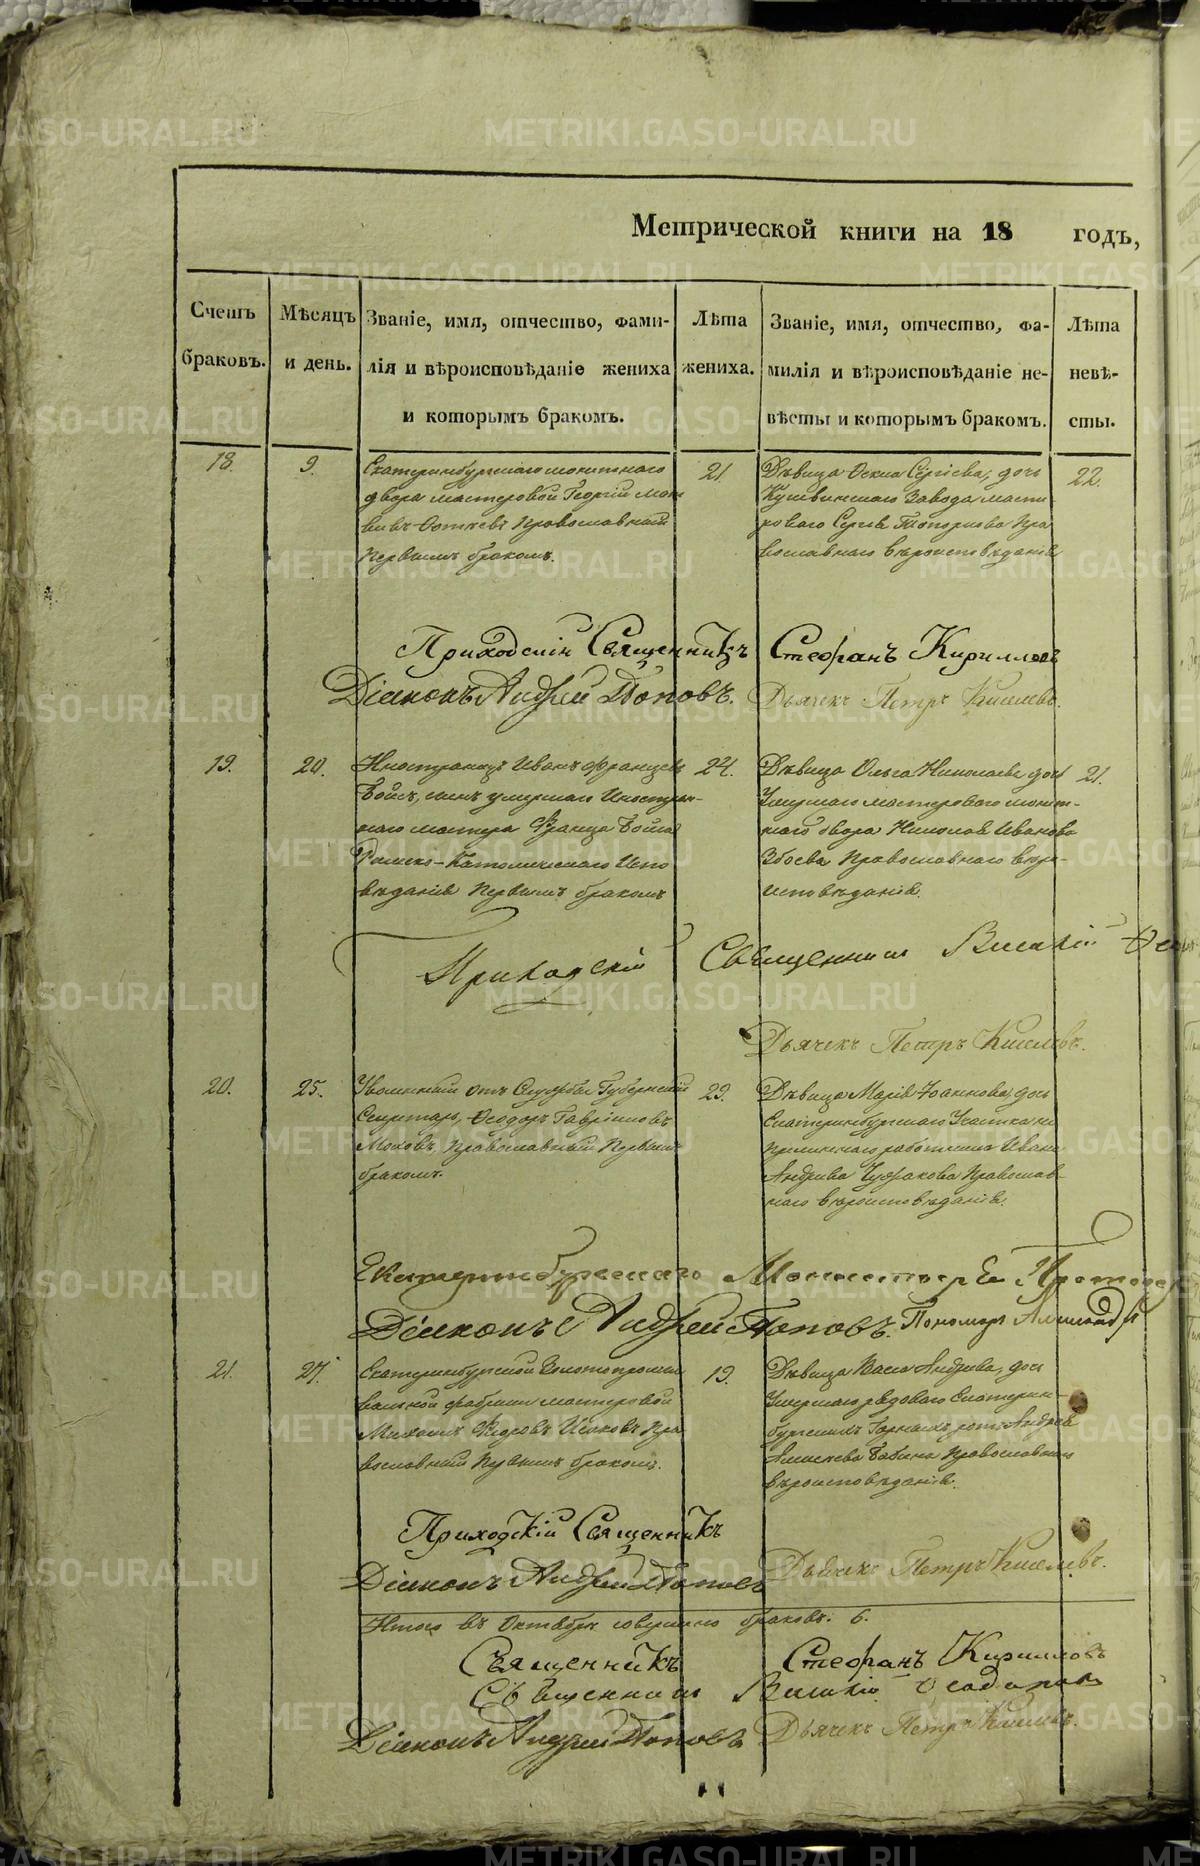 Метрической книги на 18 годъ,
Счетъ браковъ.
Мѣсяцъ и день.
Званіе, имя, отчество, фами-
лія и вѣроисповѣданіе жениха
и которымъ бракомъ.
Лѣта жениха.
Званіе, имя, отчество, фа-
милія и вѣроисповѣданіе не-
вѣсты и которымъ бракомъ.
Лѣта невѣ-
сты.
18. 9.
Екатеринбургскаго монетнаго
двора мастеровой Георгій
Православный
первымъ бракомъ.
21.
Дѣвица Сергіева, дочь
Кушвинскаго Завода масте-
роваго Сергѣя Топоркова Пра
вославнаго вѣроисповѣданія
22.
Приходскій Священникъ Стефанъ Кирилловъ
Діаконъ Андрей Поповъ. Дьячекъ Петръ Киселевъ.
19. 20.
Иностранецъ Иванъ Францевъ
сынъ умершаго Иностран-
наго мастера Франца
Римско-Католическаго Испо
вѣданія первымъ бракомъ
24.
Дѣвица Ольга Николаева дочь
Умершаго мастероваго монет-
наго двора Николая Иванова
Збоева Православнаго вѣро-
исповѣданія.
21.
Приходскій Священникъ Василій
Дьячекъ Петръ Киселевъ.
20. 25.
Уволенный отъ Службы Губернскій
Секретарь, Ѳеодоръ Гавріиловъ
Православный Первымъ
бракомъ.
29.
Дѣвица Марія Іоаннова, дочь
Екатеринбургскаго
работника Ивана
Андреева Православ-
наго вѣроисповѣданія.
Екатеринбургскаго
Діаконъ Андрей Поповъ. Пономарь
21. 27.
Екатеринбургской Золотопромы
вальной фабрики мастеровой
Пра
вославный Первымъ бракомъ.
19.
Дѣвица Андреева, дочь
Умершаго рядоваго Екатерин-
бургскихъ Горныхъ ротъ Андрея
Алексеева Бабина Православнаго
вѣроисповѣданія.
Приходскій Священникъ
Діаконъ Андрей Поповъ Дьячекъ Петръ Киселевъ.
Итого въ Октябрѣ совершено браковъ: 6.
Священникъ Стефанъ Кирилловъ
Священникъ Василій
Діаконъ Андрей Поповъ Дьячекъ Петръ Киселевъ.
METRIKI.GASO-URAL.RU